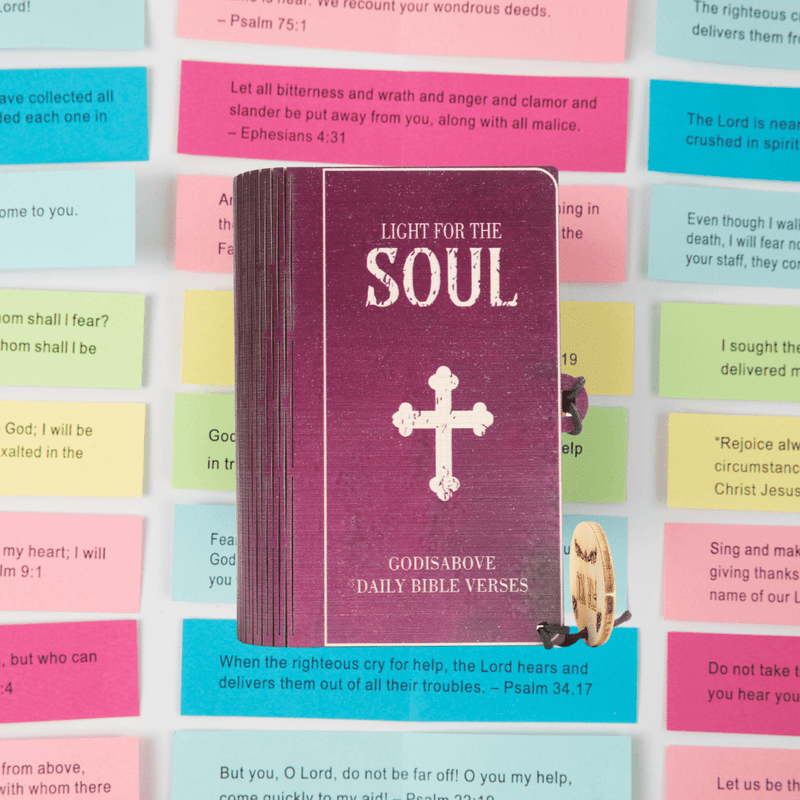 Lord!
time is near. We recount your wondrous deeds.
– Psalm 75:1
The righteous
delivers them
ave collected all
ded each one in
Let all bitterness and wrath and anger and clamor and
slander be put away from you, along with all malice.
– Ephesians 4:31
The Lord is near
crushed in spirit
ome to you.
ing in
the
Even though I walk
death, I will fear no
your staff, they
LIGHT FOR THE
SOUL
GODISABOVE
DAILY BIBLE VERSES
hom shall I fear?
hom shall I be
19
I sought the
delivered
God; I will be
xalted in the
God
in
elp
"Rejoice
Christ Jesus
my heart; I will
lm 9:1
Fear
God
you
Sing and
giving thanks
name of our
, but who can
:4
When the righteous cry for help, the Lord hears and
delivers them out of all their troubles. – Psalm 34.17
Do not take
you hear
from above,
with whom there
But you, O Lord, do not be far off! O you my help,
come quickly to my aid! – Psalm 22:19
Let us be